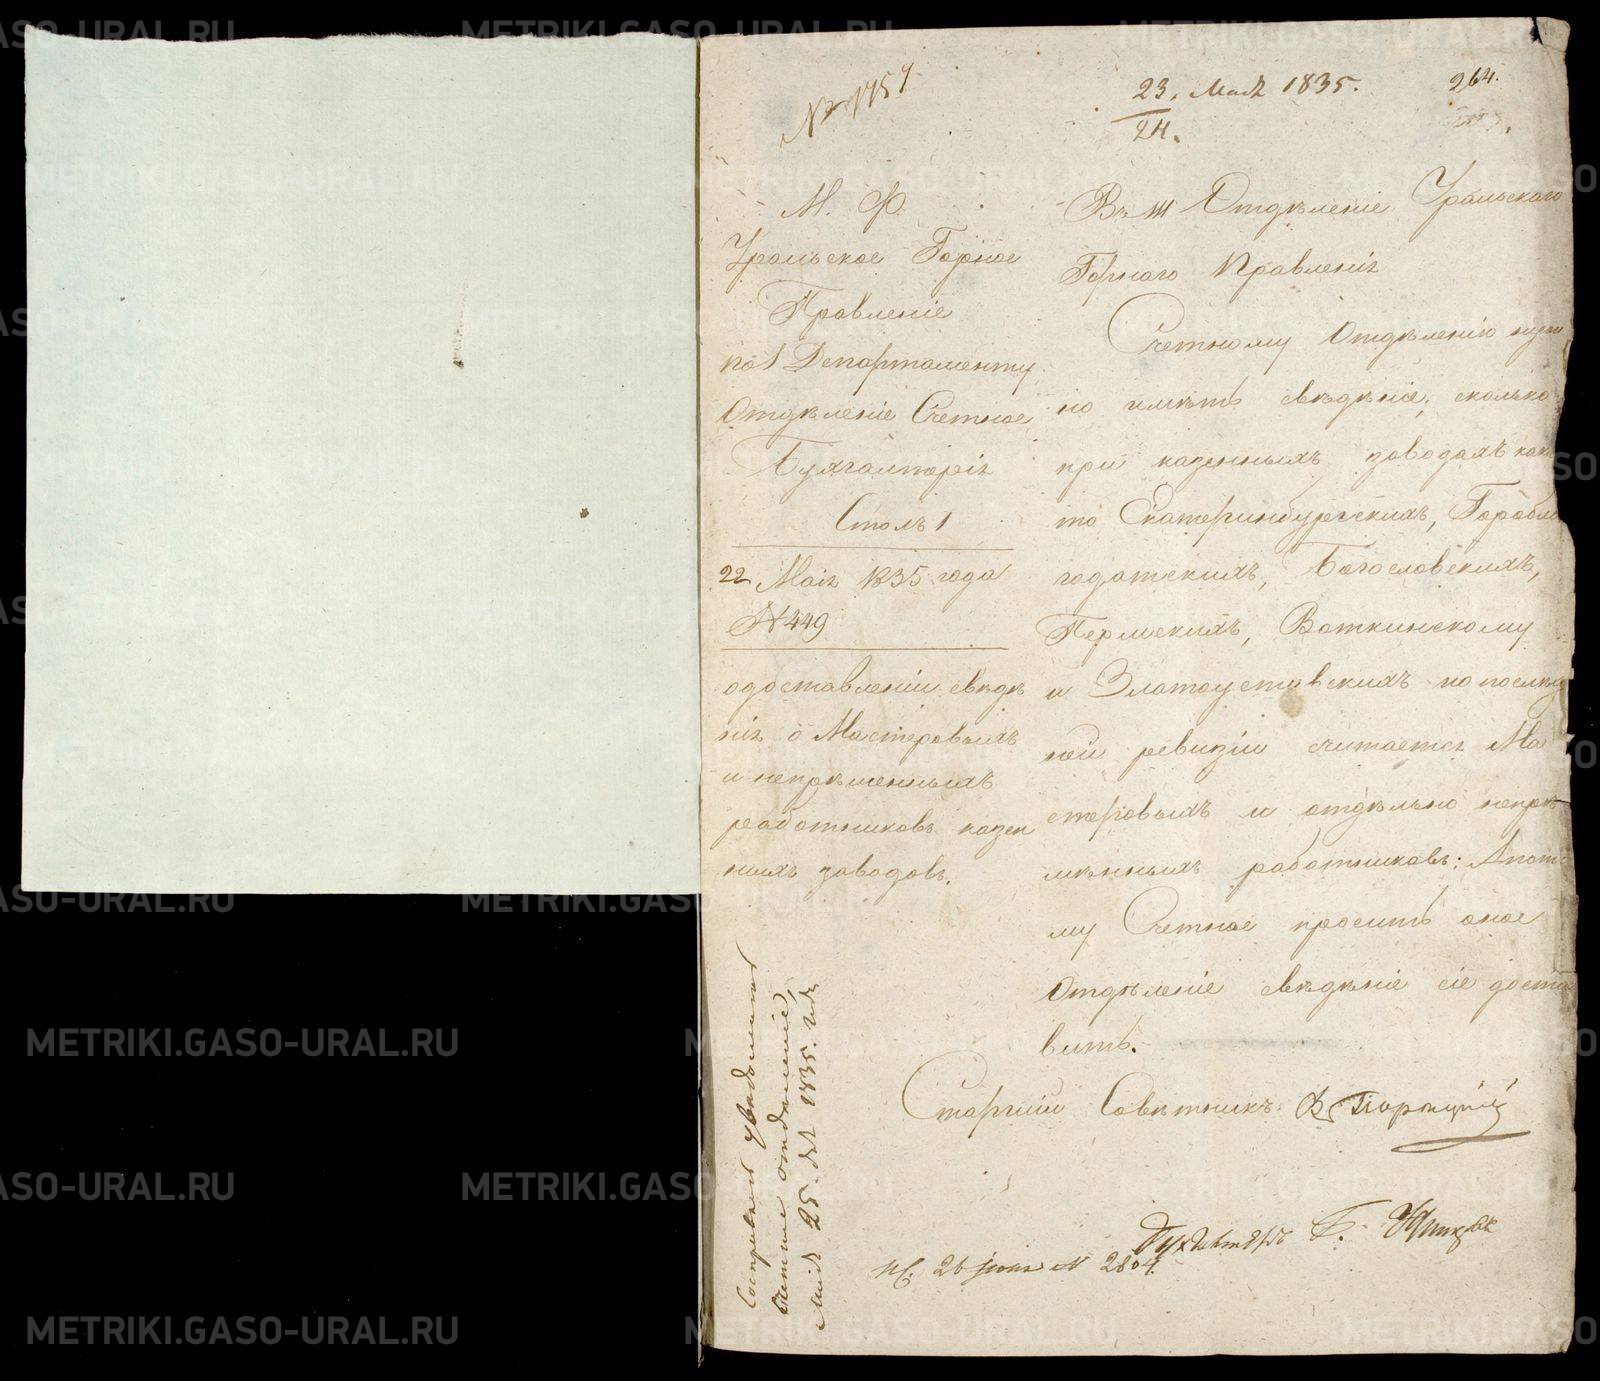 № 1754
23. Мая 1835.
24.
264.
М. Ф.
Уральское Горное
Правленіе
по 1 Департаменту
Отдѣленіе Счетное
Бухгалтерія
Столъ 1
22 Маія 1835 года
№ 449
о доставленіи свѣдѣ
нія о Мастеровыхъ
и непремѣнныхъ
работниковъ казен
ныхъ заводовъ.
Въ III Отдѣленіе Уральскаго
Горнаго Правленія
Счетному Отдѣленію нуж
но имѣть свѣдѣніе, сколько
при казенныхъ заводахъ как
то Екатеринбургскихъ, Горобла
годатскихъ, Богословскихъ,
Пермскихъ, Воткинскому
и Златоустовскихъ по послѣд
ней ревизіи считается Ма
стеровыхъ и отдѣльно непре
мѣнныхъ работниковъ: А пото
му Счетное проситъ оное
Отдѣленіе свѣдѣніе сіе доста
вить.
Старшій Совѣтникъ
Бухгалтеръ
Исп. 26 іюня № 2804.
увѣдомить
Счетное отдѣленіе
Маія 25. дня 1835. года
METRIKI.GASO-URAL.RU